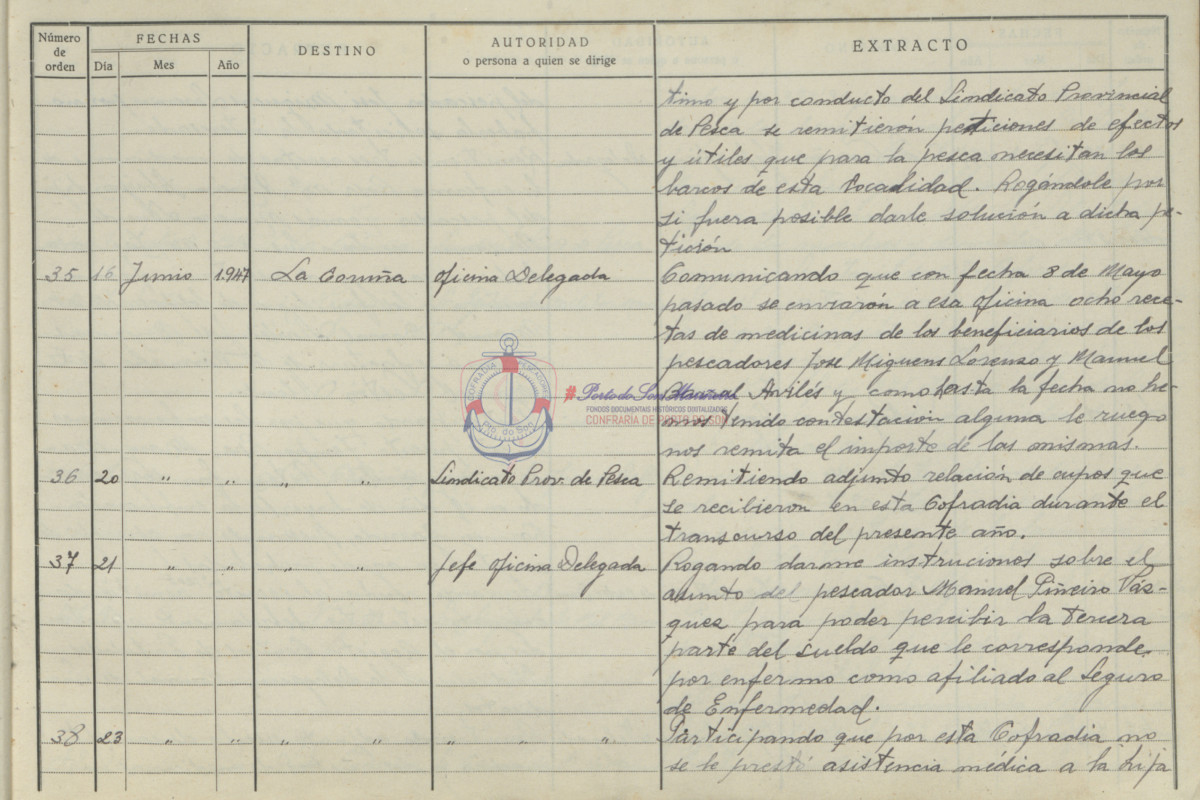 Número de orden
FECHAS
Día Mes Año
DESTINO
AUTORIDAD
o persona a quien se dirige
EXTRACTO
timo y por conducto del Sindicato Provincial
de Pesca se remitierón peticiones de efectos
y útiles que para la pesca necesitan los
barcos de esta localidad. Rogándole por
si fuera posible darle solución a dicha pe-
tición
35 16 Junio 1.947 La Coruña Oficina Delegada Comunicando que con fecha 8 de Mayo
pasado se enviarón a esa oficina ocho rece-
tas de medicinas de los beneficiarios de los
pescadores Jose Miguens Lorenzo y Manuel
Avilés y, como hasta la fecha no he-
mos tenido contestación alguna le ruego
nos remita el importe de las mismas.
36 20 " " " " Sindicato Prov. de Pesca Remitiendo adjunto relación de cupos que
se recibieron en esta Cofradia durante el
transcurso del presente año.
37 21 " " " " Jefe Oficina Delegada Rogando darme instruciones sobre el
asunto del pescador Manuel Piñeiro Váz-
quez para poder percibir la tercera
parte del sueldo que le corresponde,
por enfermo como afiliado al Seguro
de Enfermedad.
38 23 " " " " " " " Participando que por esta Cofradia no
se le prestó asistencia médica a la hija
COFRADIA PESCADORES
Pto. do Son
#Porto do Son
FONDOS DOCUMENTAIS HISTÓRICOS DIGITALIZADOS
CONFRARIA DE PORTO DO SON